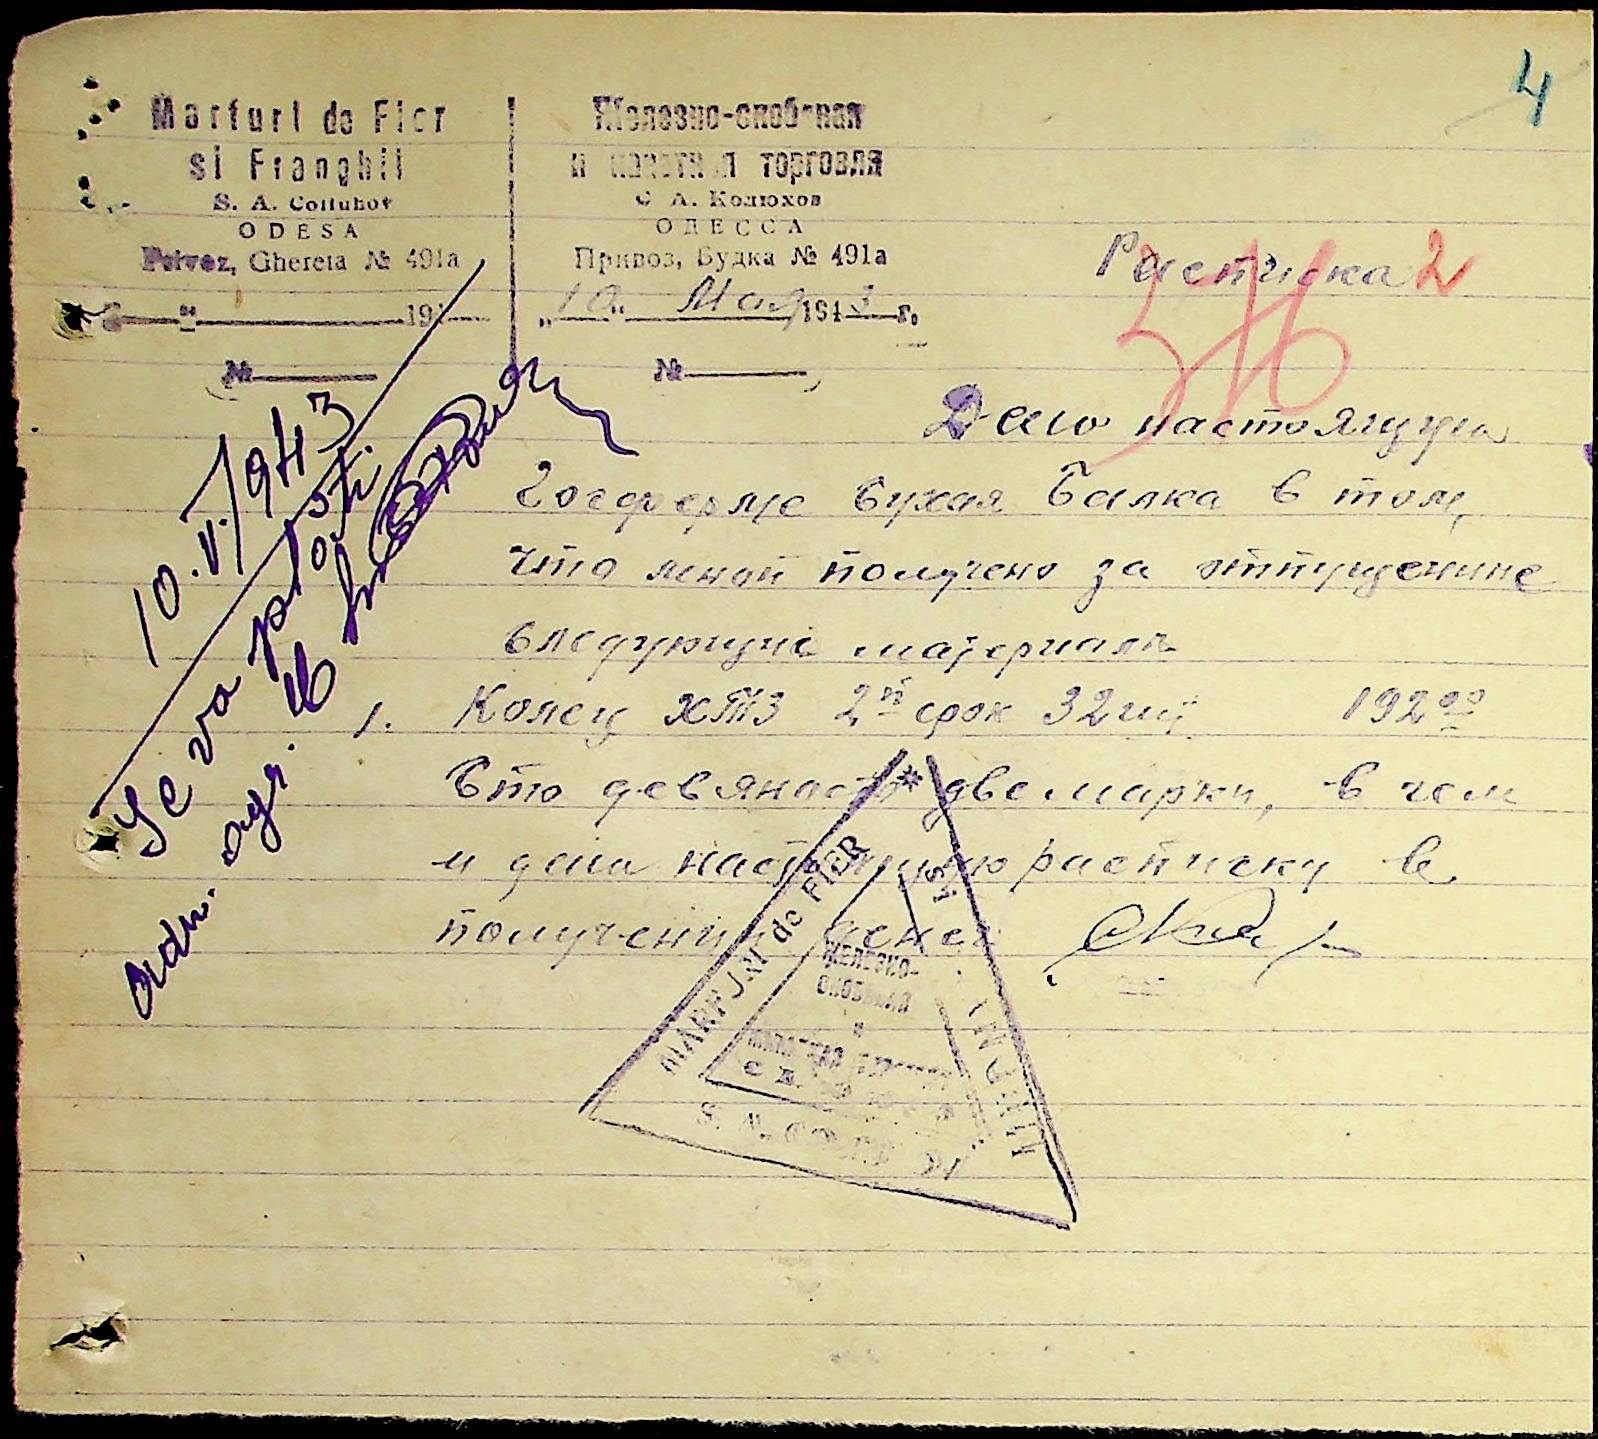 4
Marfuri de Fier
si Franghii
S. A. Coliuhov
ODESA
Privoz, Ghereta № 491a
194
№
Железно-скобяная
и канатная торговля
С. А. Колюхов
ОДЕССА
Привоз, Будка № 491а
„10„ Мая 1943 г.
№
Расписка 2
Даю настоящую
Госферме Сухая Балка в том,
что мной получено за отпущение
следующие материалы
1. Колец ХТЗ 2й срок 32 шт 192 00
Сто девяносто две марки, в чем
и даю настоящую расписку в
получении денег
10.V.1943
Se va plăti
adm. agr.
MARFURI de FIER
ЖЕЛЕЗНО-
СКОБЯНАЯ
и
С. А.
S. A.